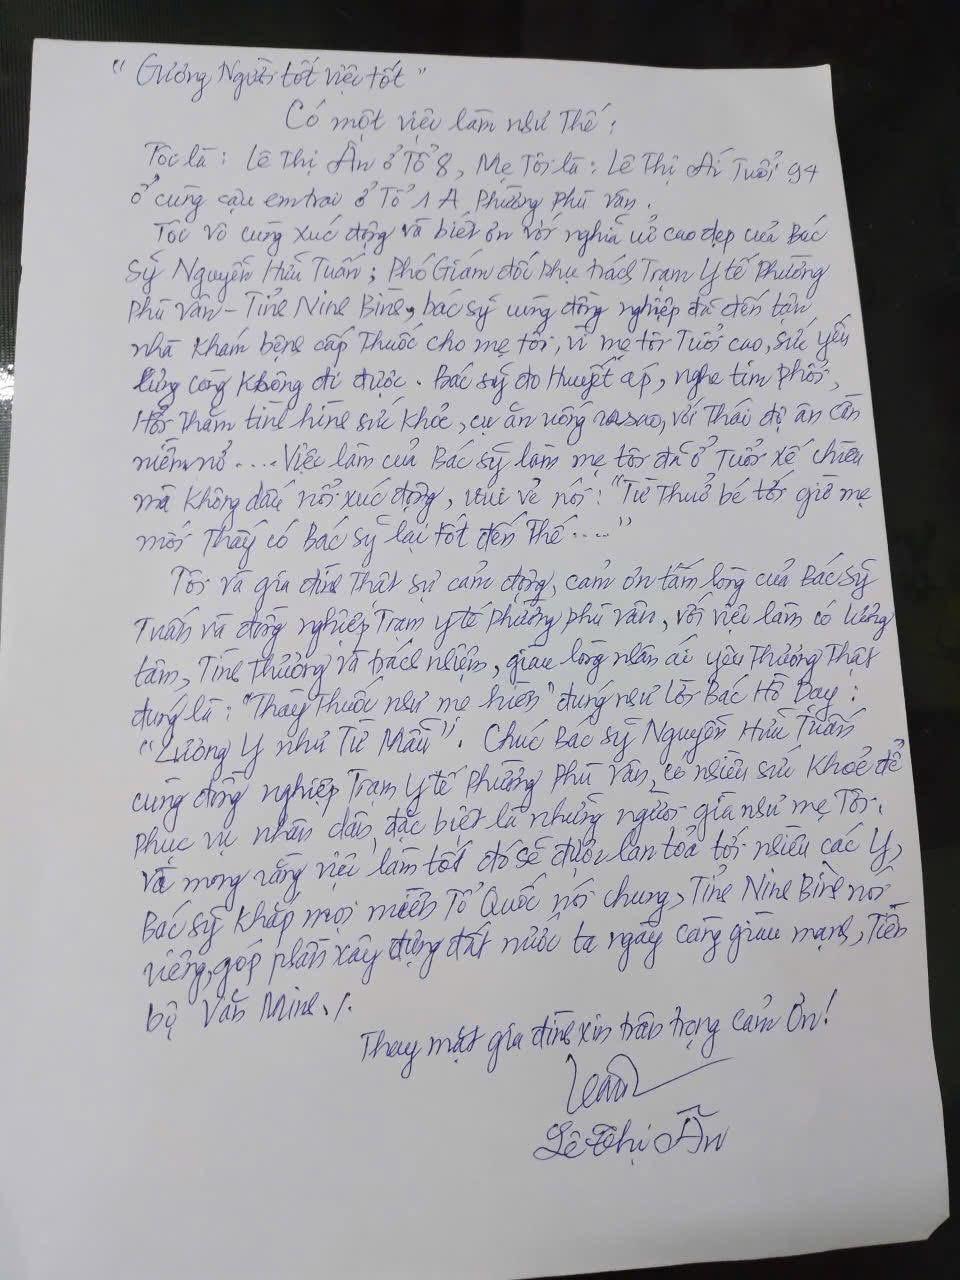 "Gương Người tốt việc tốt"
Có một việc làm như thế:
Tôi là: Lê Thị Ân ở Tổ 8, Mẹ Tôi là: Lê Thị Ái Tuổi 94
ở cùng cậu em trai ở Tổ 1A Phường Phù Vân.
Tôi vô cùng xúc động và biết ơn với nghĩa cử cao đẹp của Bác
sỹ Nguyễn Hữu Tuấn; Phó Giám đốc phụ trách Trạm Y tế Phường
Phù Vân - Tỉnh Ninh Bình, bác sỹ cùng đồng nghiệp đã đến tận
nhà khám bệnh cấp thuốc cho mẹ tôi, vì mẹ tôi Tuổi cao, sức yếu
lưng còng không đi được. Bác sỹ đo Huyết áp, nghe tim phổi,
Hỏi thăm tình hình sức khoẻ, cụ ăn uống ra sao, với thái độ ân cần
niềm nở .... Việc làm của Bác sỹ làm mẹ tôi đã ở Tuổi xế chiều
mà không dấu nổi xúc động, vui vẻ nói: "Từ thuở bé tới giờ mẹ
mới thấy có Bác sỹ lại tốt đến thế ...."
Tôi và gia đình thật sự cảm động, cảm ơn tấm lòng của Bác sỹ
Tuấn và đồng nghiệp Trạm y tế phường phù vân, với việc làm có lương
tâm, Tình thương và trách nhiệm, giàu lòng nhân ái yêu thương thật
đúng là: "Thầy thuốc như mẹ hiền" đúng như lời Bác Hồ Dạy:
"Lương Y như Từ Mẫu". Chúc Bác sỹ Nguyễn Hữu Tuấn
cùng đồng nghiệp Trạm Y tế phường Phù Vân, có nhiều sức khoẻ để
phục vụ nhân dân, đặc biệt là những người già như mẹ Tôi.
Và mong rằng việc làm tốt đó sẽ được lan toả tới nhiều các Y,
Bác sỹ khắp mọi miền Tổ Quốc nói chung, Tỉnh Ninh Bình nói
riêng, góp phần xây dựng đất nước ta ngày càng giàu mạnh, Tiến
bộ Văn Minh./.
Thay mặt gia đình xin trân trọng Cảm Ơn!
Lê Thị Ân